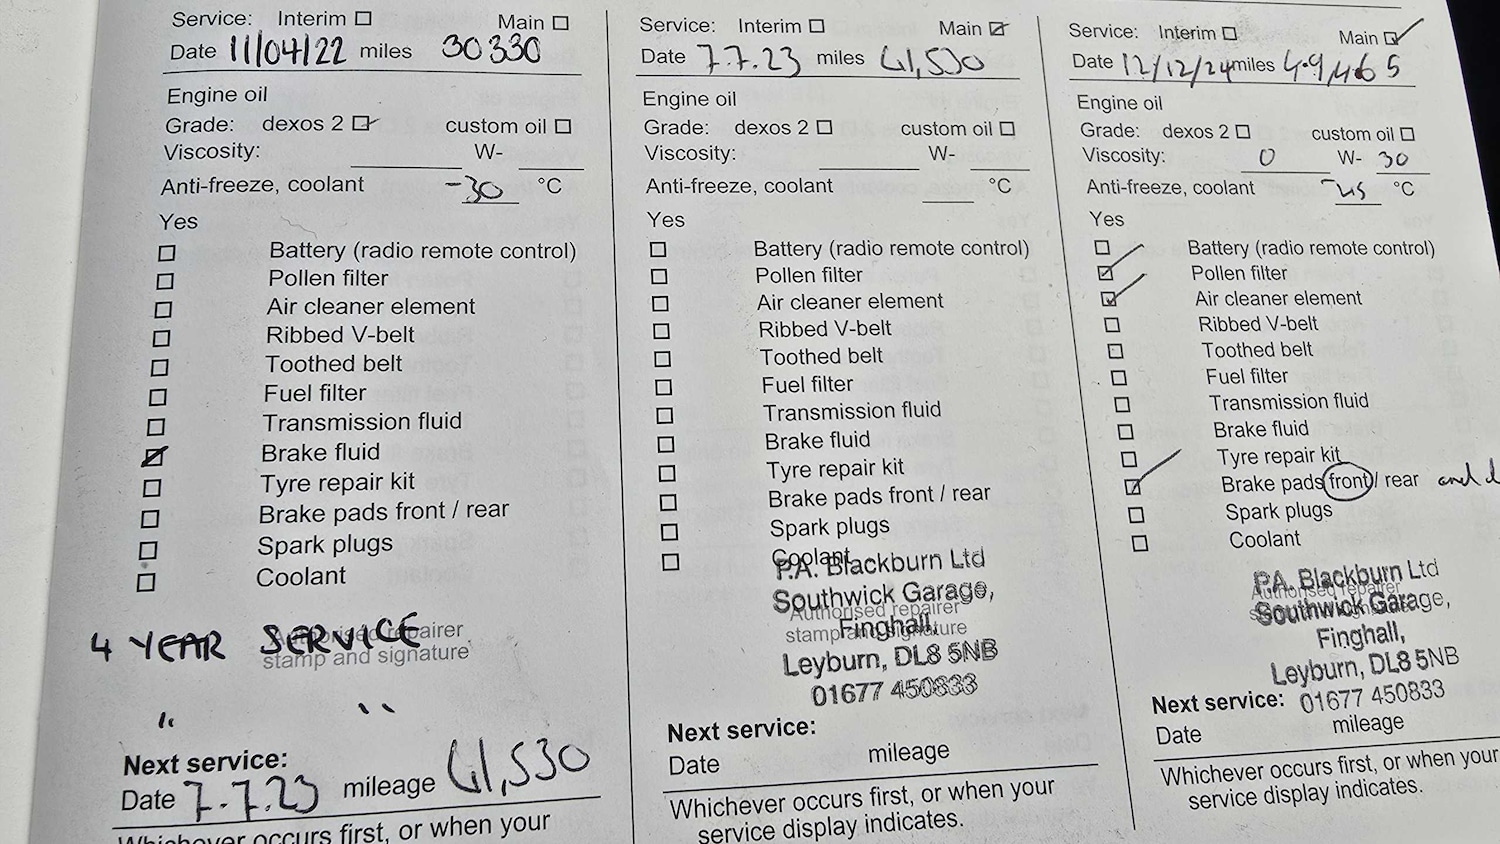 Service: Interim ☐ Main ☐
Date 11/04/22 miles 30330
Engine oil
Grade: dexos 2 ☑ custom oil ☐
Viscosity: W-
Anti-freeze, coolant -30 °C
Yes
☐ Battery (radio remote control)
☐ Pollen filter
☐ Air cleaner element
☐ Ribbed V-belt
☐ Toothed belt
☐ Fuel filter
☐ Transmission fluid
☑ Brake fluid
☐ Tyre repair kit
☐ Brake pads front / rear
☐ Spark plugs
☐ Coolant
4 YEAR SERVICE
Authorised repairer
stamp and signature
" "
Next service:
Date 7.7.23 mileage 41,530
Whichever occurs first, or when your
Service: Interim ☐ Main ☑
Date 7.7.23 miles 41,530
Engine oil
Grade: dexos 2 ☐ custom oil ☐
Viscosity: W-
Anti-freeze, coolant °C
Yes
☐ Battery (radio remote control)
☐ Pollen filter
☐ Air cleaner element
☐ Ribbed V-belt
☐ Toothed belt
☐ Fuel filter
☐ Transmission fluid
☐ Brake fluid
☐ Tyre repair kit
☐ Brake pads front / rear
☐ Spark plugs
☐ Coolant
P.A. Blackburn Ltd
Southwick Garage,
Authorised repairer
Finghall,
stamp and signature
Leyburn, DL8 5NB
01677 450833
Next service:
Date mileage
Whichever occurs first, or when your
service display indicates.
Service: Interim ☐ Main ☑
Date 12/12/24 miles 49,465
Engine oil
Grade: dexos 2 ☐ custom oil ☐
Viscosity: 0 W- 30
Anti-freeze, coolant -45 °C
Yes
☐ Battery (radio remote control)
☑ Pollen filter
☑ Air cleaner element
☐ Ribbed V-belt
☐ Toothed belt
☐ Fuel filter
☐ Transmission fluid
☐ Brake fluid
☐ Tyre repair kit
☑ Brake pads front / rear and
☐ Spark plugs
☐ Coolant
P.A. Blackburn Ltd
Authorised repairer
Southwick Garage,
Finghall,
Leyburn, DL8 5NB
01677 450833
Next service:
Date mileage
Whichever occurs first, or when your
service display indicates.